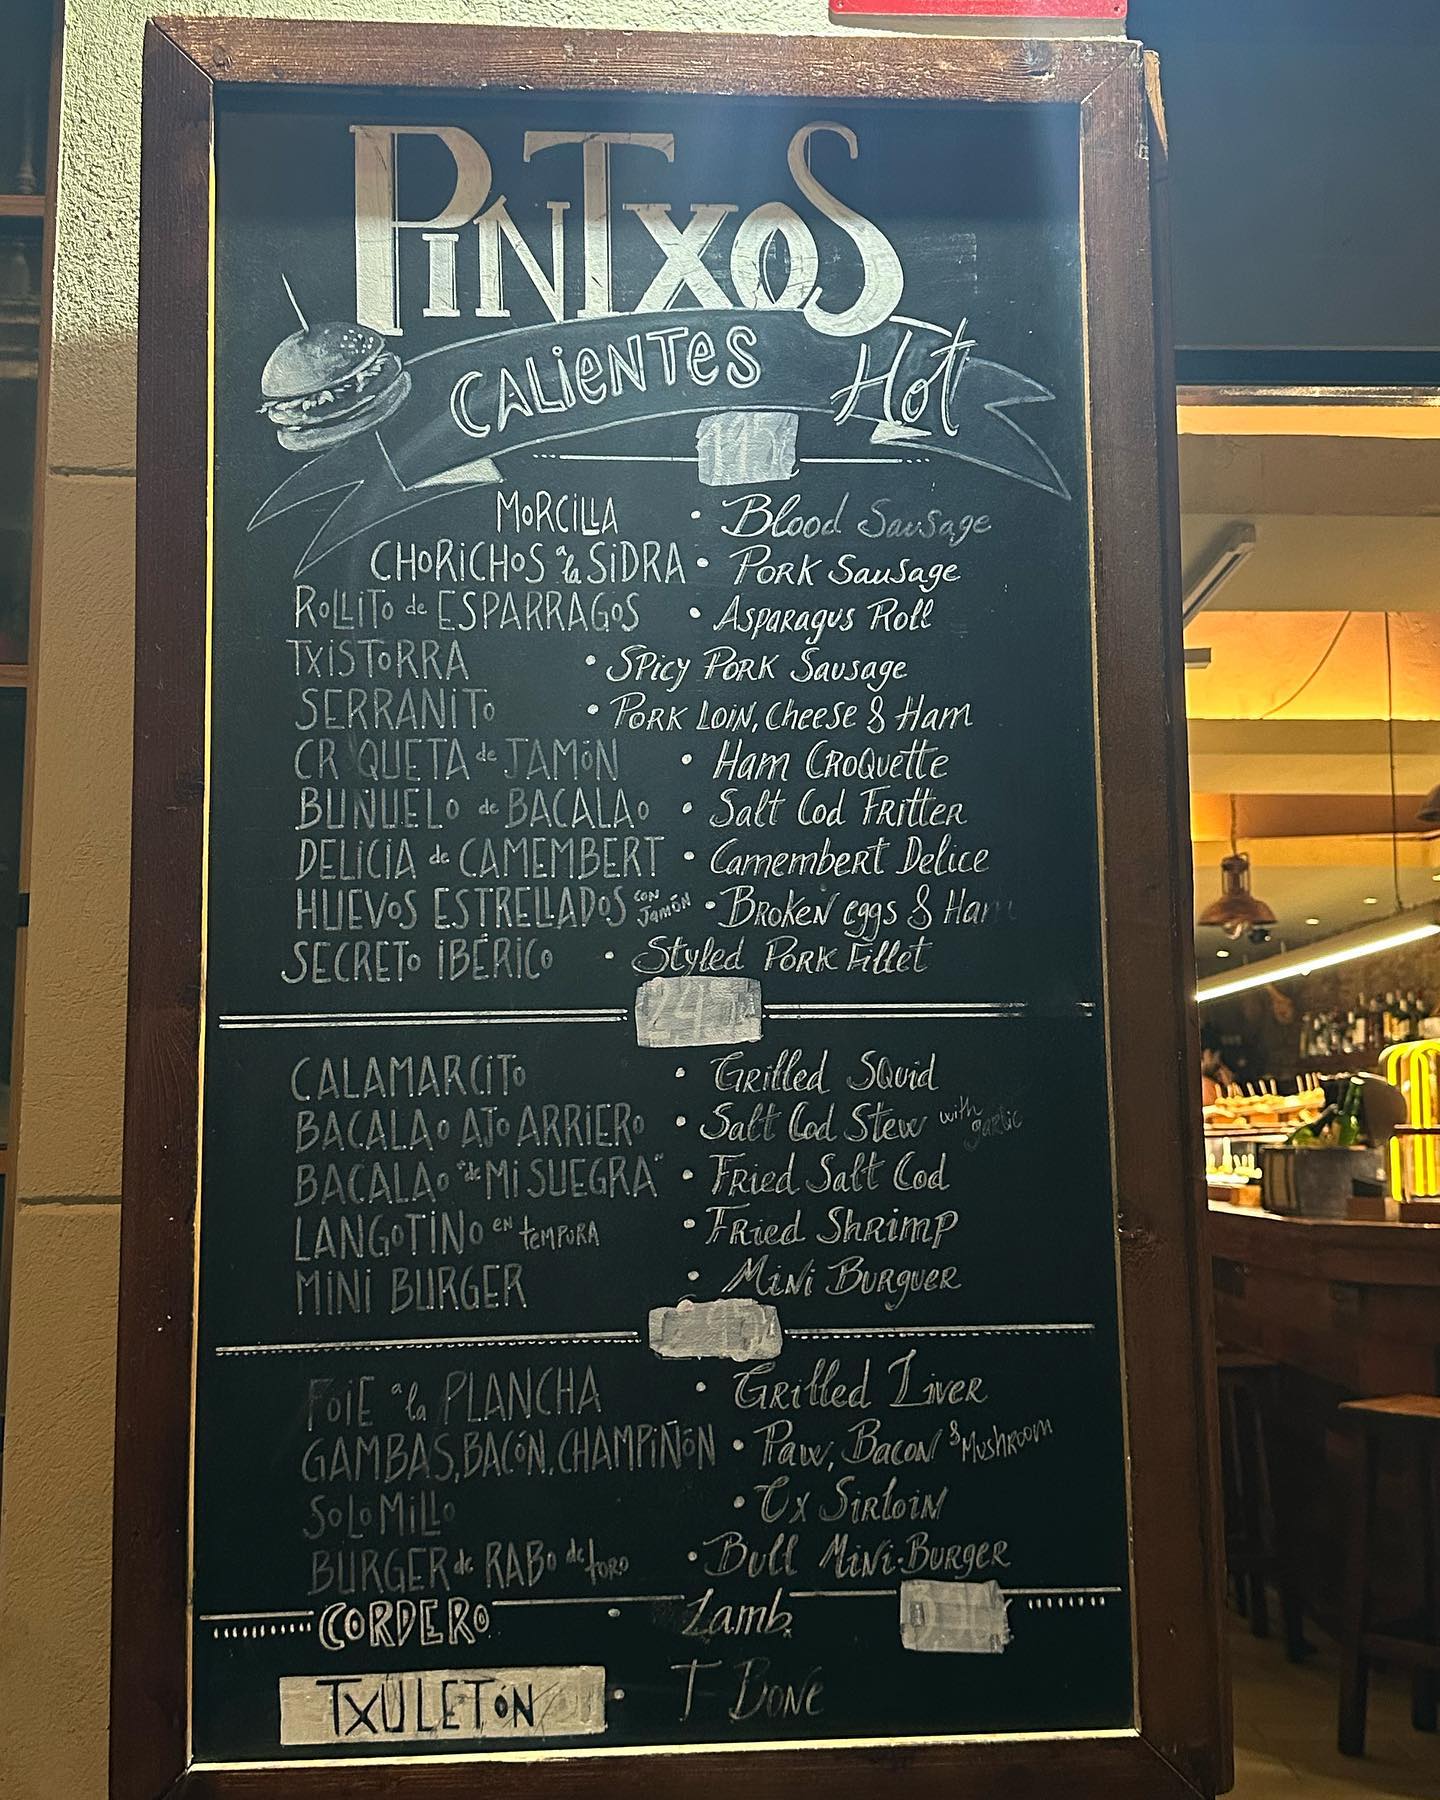 PINTXOS
CALIENTES Hot
MORCILLA • Blood Sausage
CHORICHOS a la SIDRA • PORK Sausage
ROLLITO de ESPARRAGOS • ASPARAGUS Roll
TXISTORRA • SPICY PORK Sausage
SERRANITO • PORK LOIN, Cheese & Ham
CR QUETA de JAMÓN • Ham CROQUETTE
BUÑUELO de BACALAO • Salt Cod FRITTER
DELICIA de CAMEMBERT • Camembert Delice
HUEVOS ESTRELLADOS con Jamón • BROKEN eggs & Ham
SECRETO IBÉRICO • Styled PORK Fillet
CALAMARCITO • GRilled SQuid
BACALAO AJOARRIERO • Salt Cod Stew with garlic
BACALAO "de MI SUEGRA" • FRied Salt Cod
LANGOTINO EN TEMPURA • FRied ShRimp
MINI BURGER • MINI BURGUER
FOIE a la PLANCHA • GRilled LIVER
GAMBAS, BACÓN, CHAMPIÑÓN • Paw, Bacon & MUSHROOM
SOLOMILLO • Ox SIRLOIN
BURGER de RABO de TORO • Bull MINI-BURGER
CORDERO • Lamb
TXULETÓN • T BONE